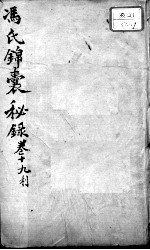 馮氏錦囊秘録卷十九利